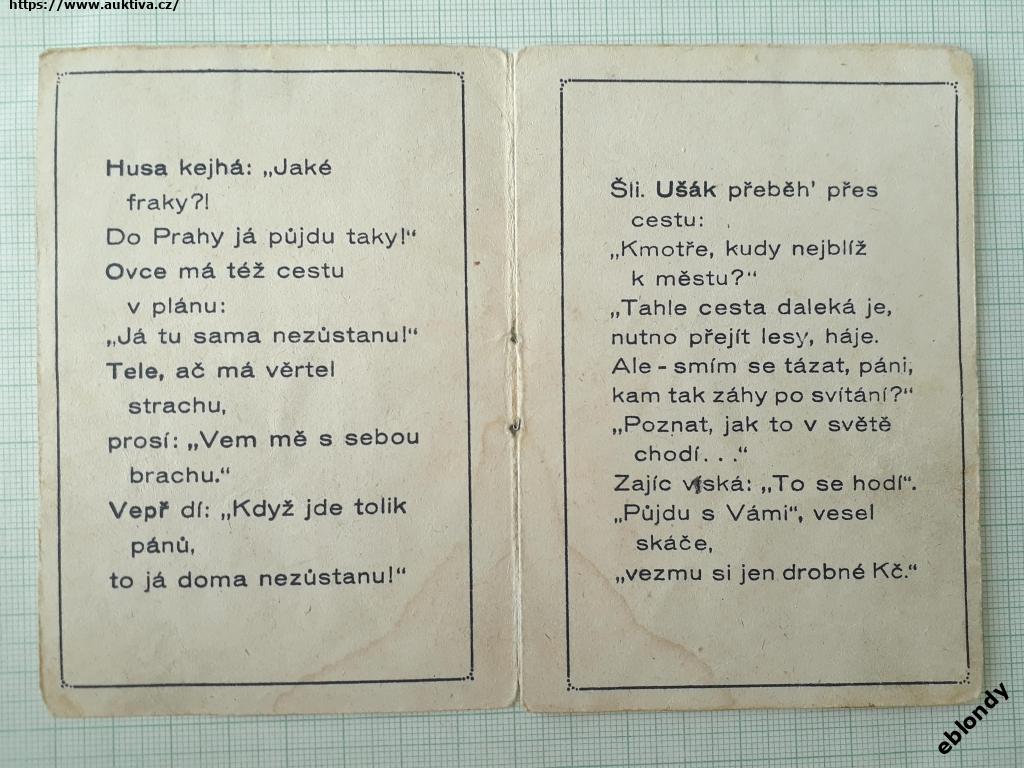 https://www.auktiva.cz/
Husa kejhá: „Jaké
fraky?!
Do Prahy já půjdu taky!“
Ovce má též cestu
v plánu:
„Já tu sama nezůstanu!“
Tele, ač má věrtel
strachu,
prosí: „Vem mě s sebou
brachu.“
Vepř dí: „Když jde tolik
pánů,
to já doma nezůstanu!“
Šli. Ušák přeběh’ přes
cestu:
„Kmotře, kudy nejblíž
k městu?“
„Tahle cesta daleká je,
nutno přejít lesy, háje.
Ale - smím se tázat, páni,
kam tak záhy po svítání?“
„Poznat, jak to v světě
chodí. . .“
Zajíc víská: „To se hodí“.
„Půjdu s Vámi“, vesel
skáče,
„vezmu si jen drobné Kč.“
eblondy